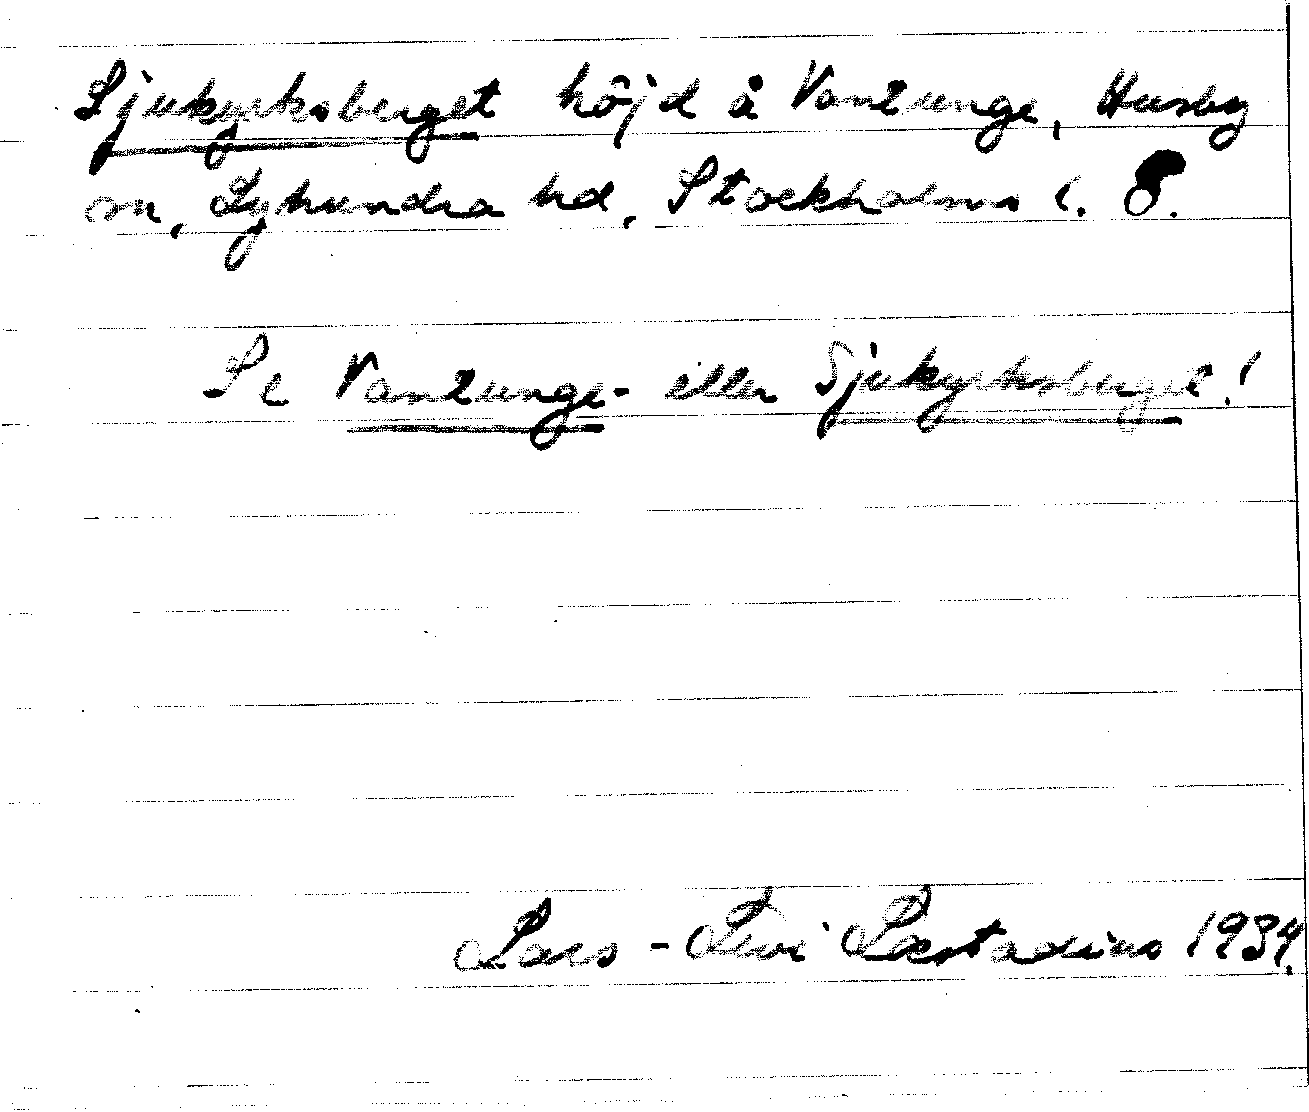 Sjukyrksberget höjd å Vanzunge, Husby
sn, Lyhundra hd, Stockholms l. 8.
Se Vanzunge- eller Sjukyrksberget!
Lars-Levi Læstadius 1934.